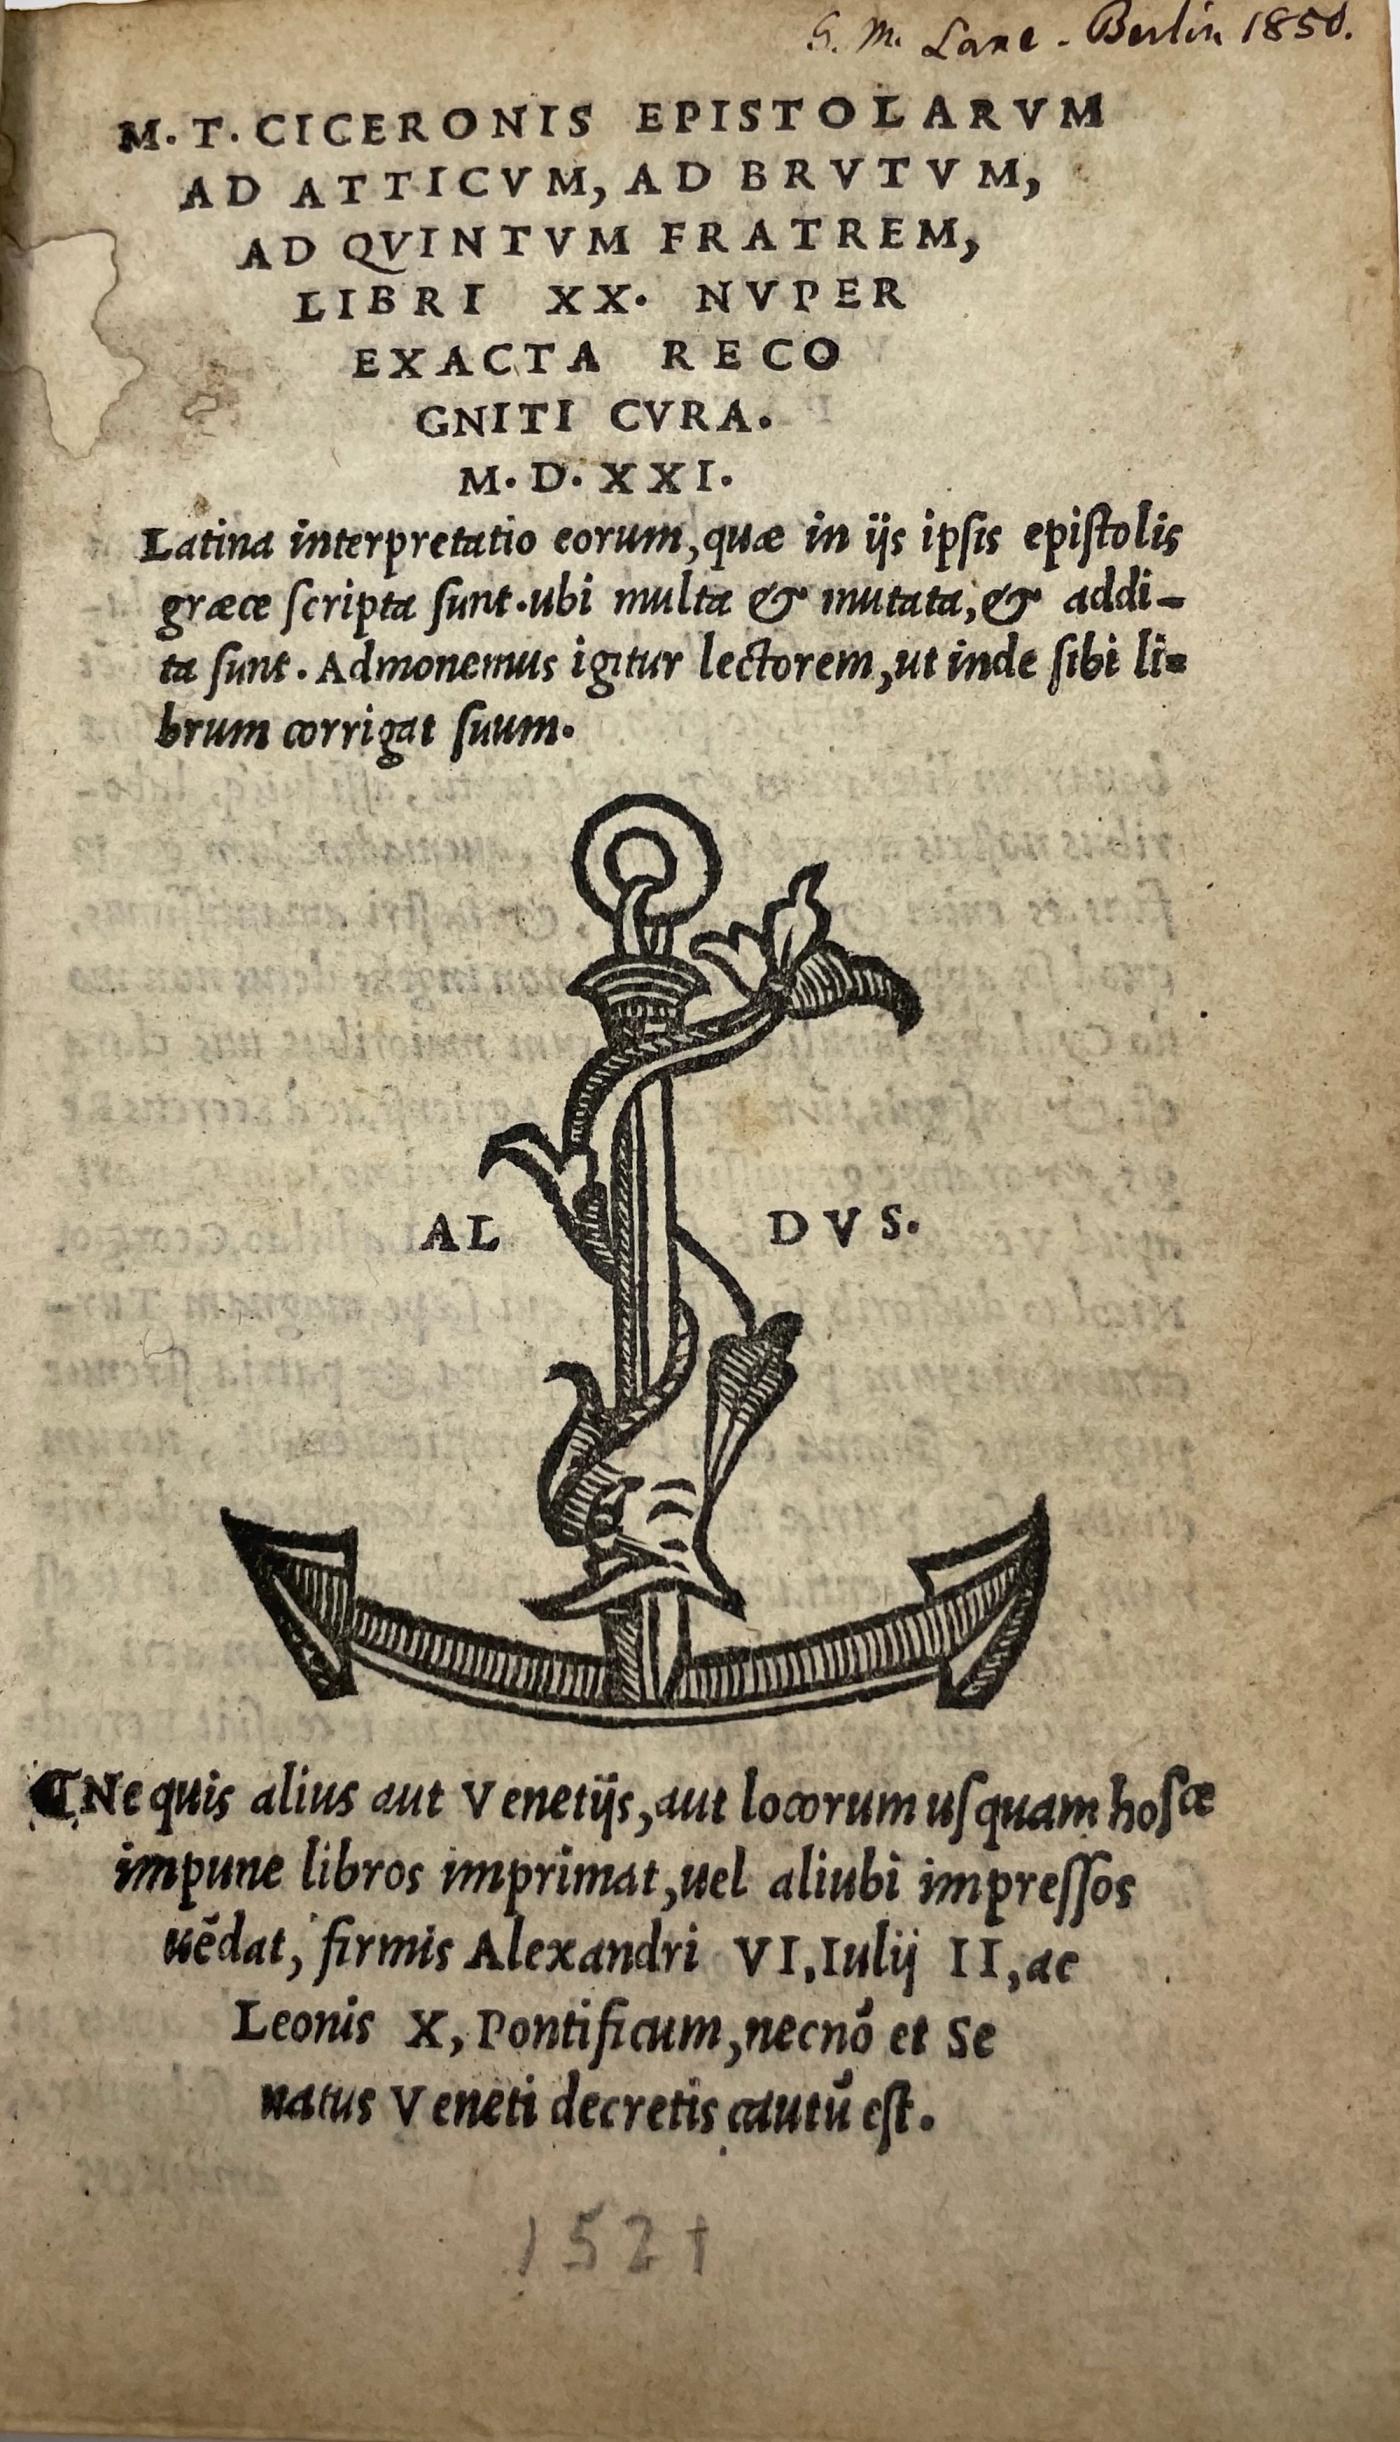 G. M. Lane - Berlin 1850.
M. T. CICERONIS EPISTOLARVM
AD ATTICVM, AD BRVTVM,
AD QVINTVM FRATREM,
LIBRI XX. NVPER
EXACTA RECO
GNITI CVRA.
M. D. XXI.
Latina interpretatio eorum, quæ in ijs ipsis epiſtolis
græce ſcripta ſunt. ubi multa & mutata, & addi-
ta ſunt. Admonemus igitur lectorem, ut inde ſibi li-
brum corrigat ſuum.
AL DVS.
Ne quis alius aut Venetijs, aut locorum uſquam hoſce
impune libros imprimat, uel aliubi impreſſos
uēdat, firmis Alexandri VI, Iulij II, ac
Leonis X, Pontificum, necnō et Se
natus Veneti decretis cautū eſt.
1521